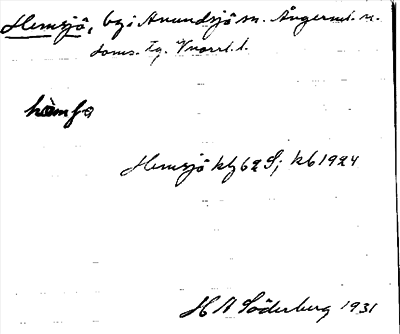 Hemsjö, by i Anundsjö sn. Ångerml. n.
doms. tg. Vnorrl. l.
hämʃə
Hemsjö klj 62 S; kb 1924
H A Söderberg 1931